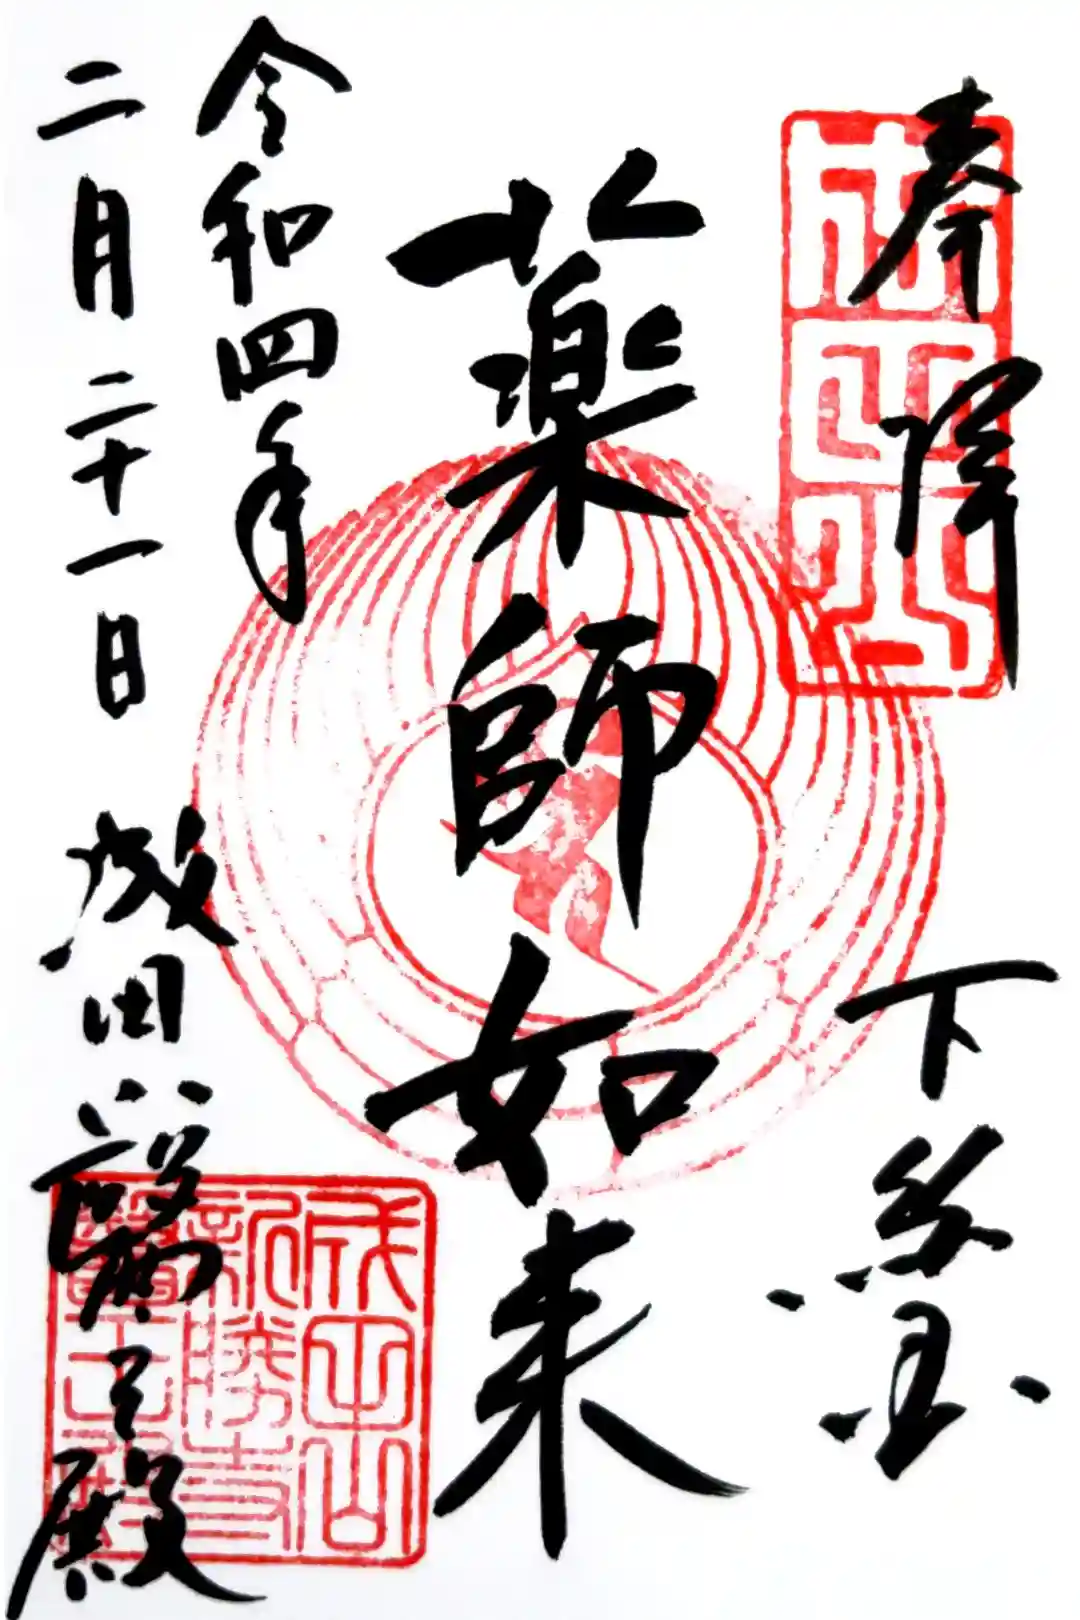 奉拝　下総国
成田山
薬師如来
令和四年
二月二十一日　成田山醫王殿
成田山
新勝寺
醫王殿